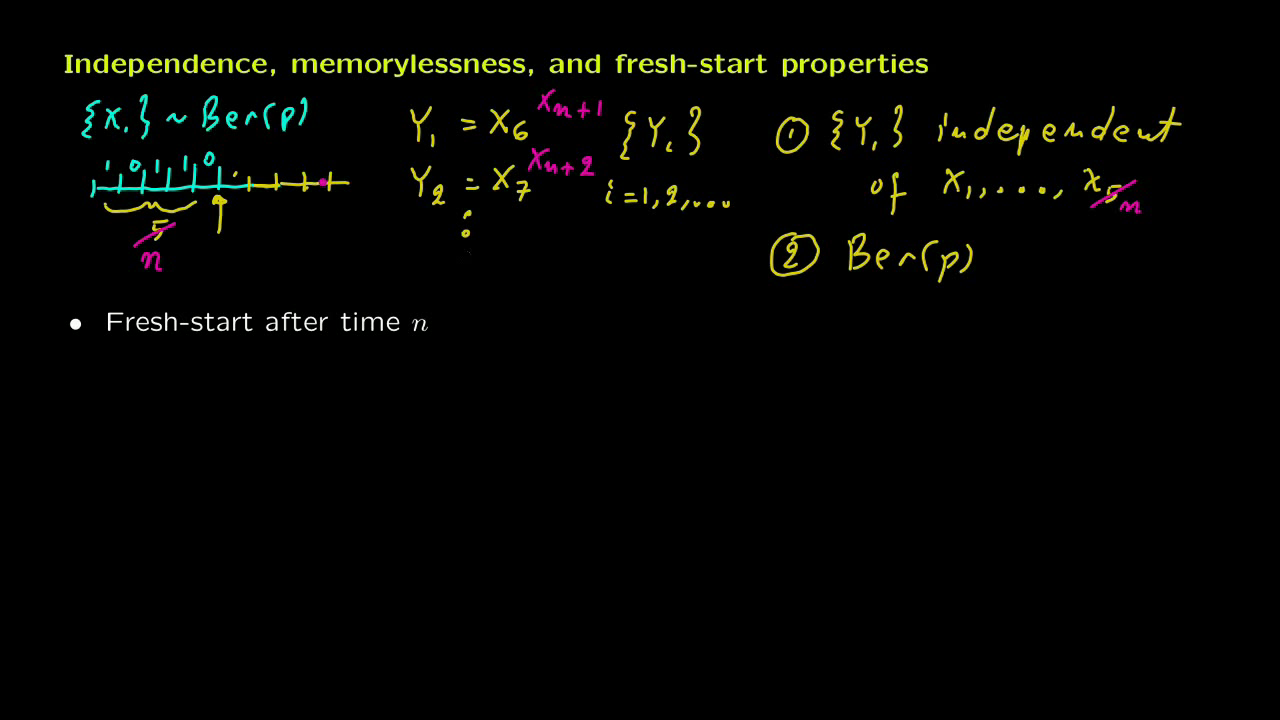 Independence, memorylessness, and fresh-start properties
{Xᵢ} ~ Ber(p)
1 0 1 1 0
5
n
Y₁ = X₆ Xₙ₊₁
Y₂ = X₇ Xₙ₊₂
⋮
{Yᵢ}
i = 1, 2, ...
① {Yᵢ} independent
of X₁, ..., X₅ n
② Ber(p)
• Fresh-start after time n